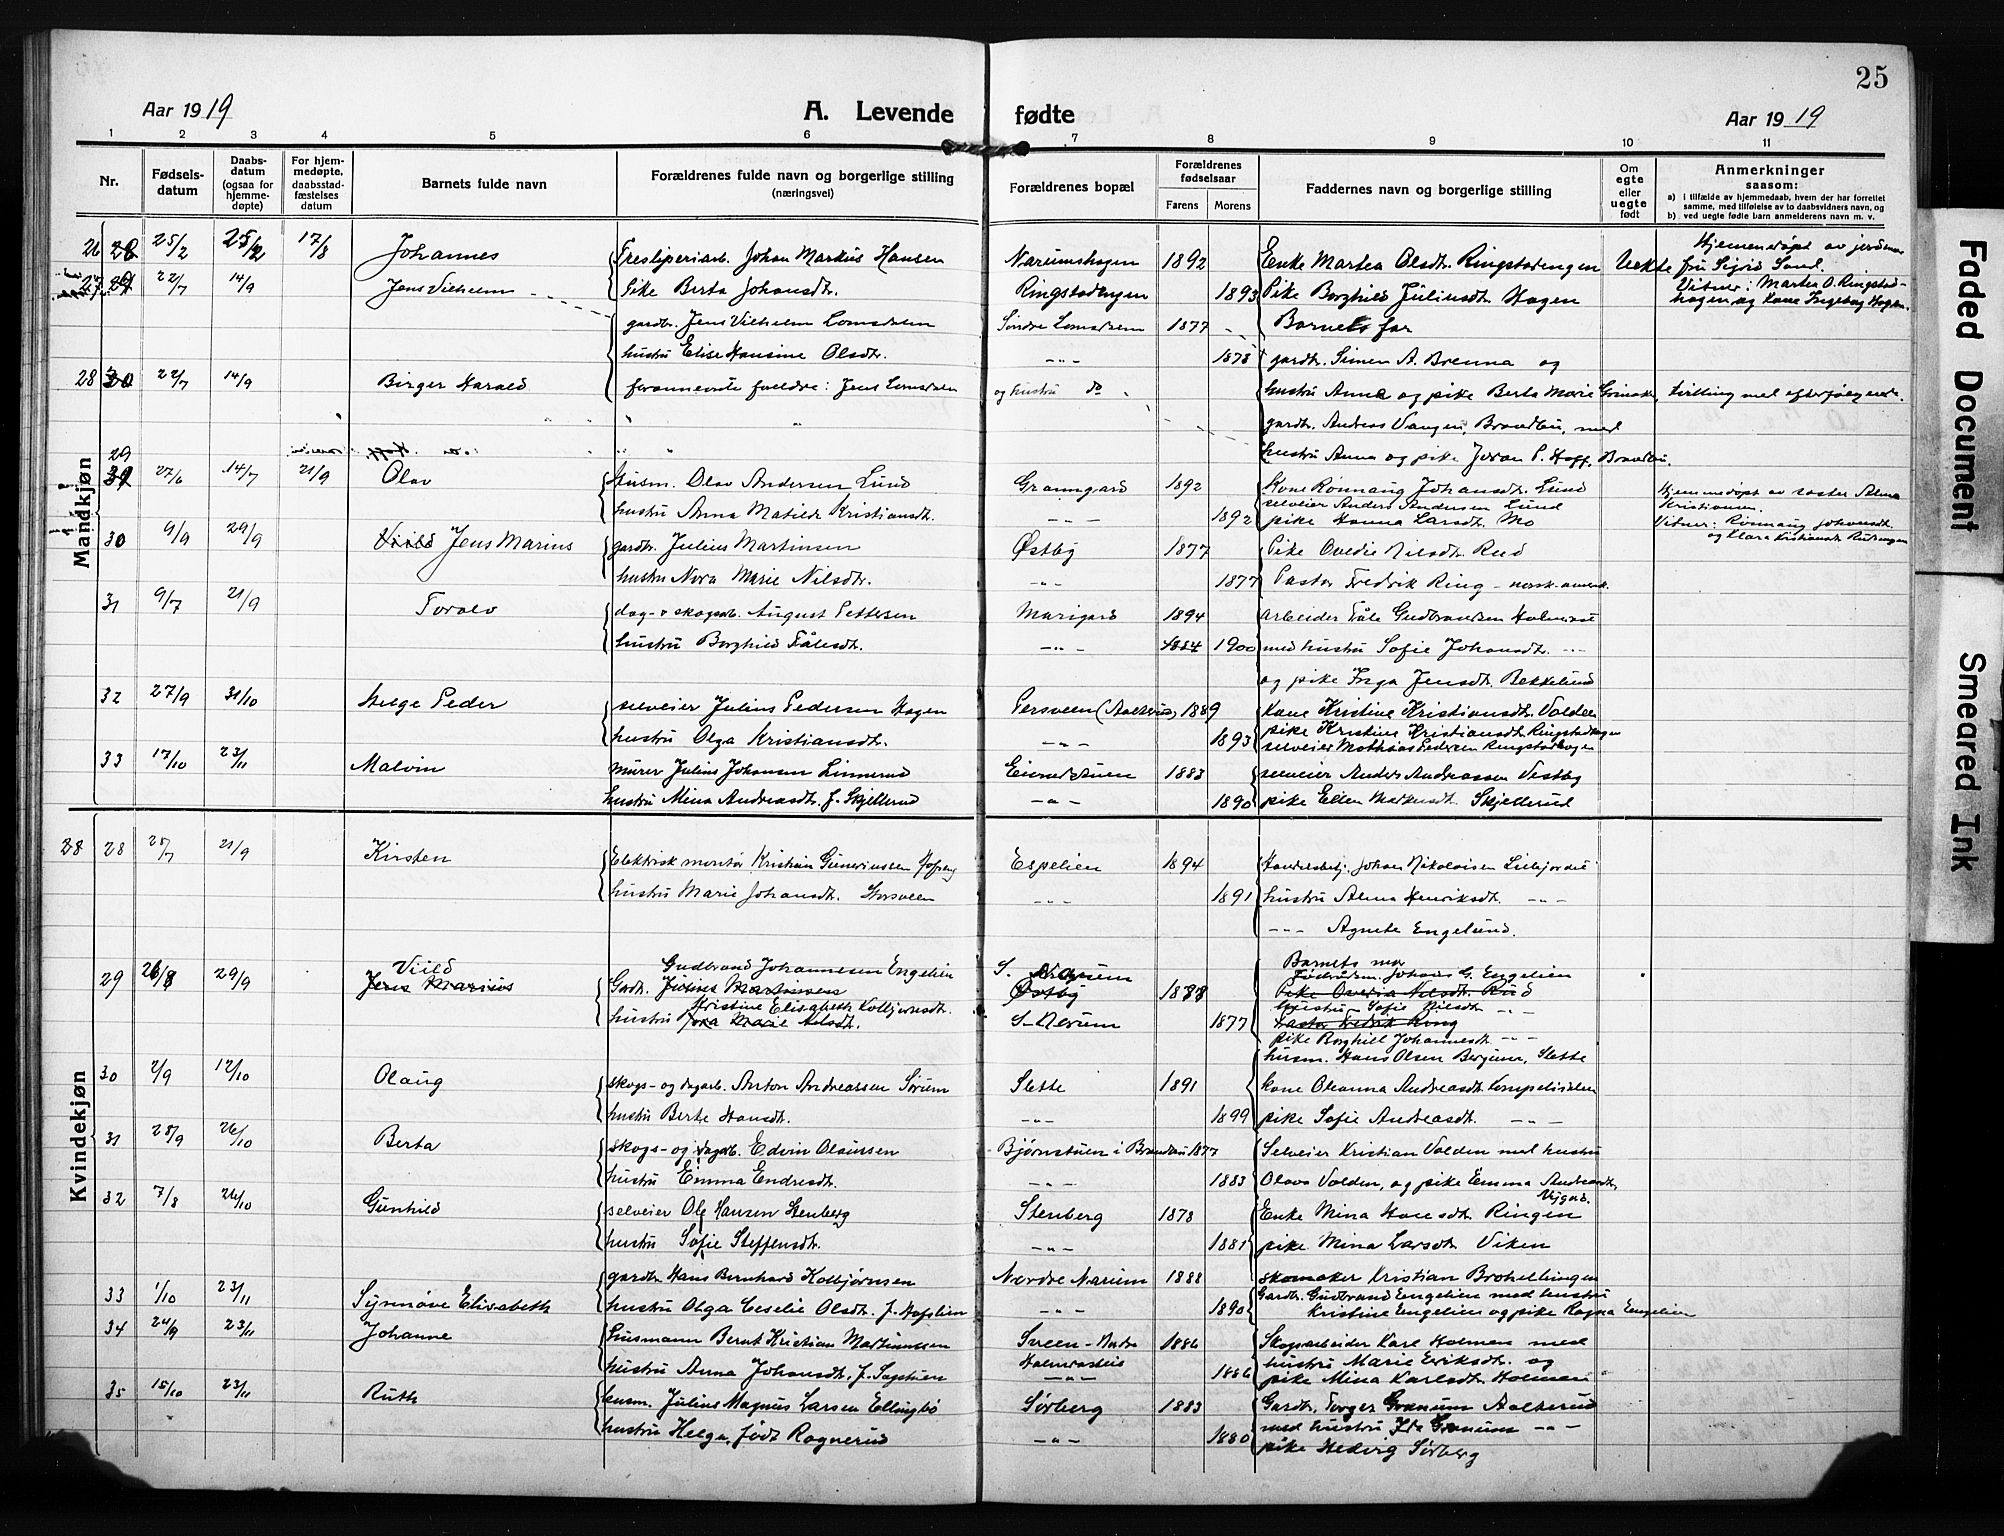 25
Aar 1919 A. Levende fødte Aar 1919
1 2 3 4 5 6 7 8 9 10 11
Nr.
Fødsels-datum
Daabs-datum (ogsaa for hjemme-døpte)
For hjem-medøpte, daabsstad-fæstelses datum
Barnets fulde navn
Forældrenes fulde navn og borgerlige stilling (næringsvei)
Forældrenes bopæl
Forældrenes fødselsaar
Farens Morens
Faddernes navn og borgerlige stilling
Om egte eller uegte født
Anmerkninger saasom:
a) i tilfælde av hjemmedaab, hvem der har forrettet samme, med tilføielse av to daabsvidners navn, og
b) ved uegte fødte barn anmelderens navn m. v.
Mandkjøn
26 25/2 17/8 Johannes Johan Markus Hansen Narumshagen 1892 Enke Martea Olsdt. Ringstadengen Uekte Hjemmedøpt av jordmor
fru Sigrid Sand.
27 22/7 14/9 Jens Vilhelm Pike Berta Johansdt. Ringstadengen 1893 Pike Borghild Juliusdt. Hagen Vitner: Martea O. Ringstad-
hagen og Kone Ingeborg Hagen.
gardbr. Jens Vilhelm Lomsdalen Søndre Lomsdalen 1877 Barnets far
hustru Elise Hansine Olsdt. -"- 1878 gardbr. Simen A. Brenna og
28 22/7 14/9 Birger Harald forannevnte foreldre: Jens Lomsdalen og hustru do hustru Anna og pike Berta Marie tvilling med efterfølgende.
gardbr. Andreas Vangen, Brandbu, med
hustru Anna og pike Joran P. Hoff, Brandbu.
29 27/6 14/7 21/9 Olav Husm. Olav Andersen Lund Granngard 1892 Kone Rønnaug Johansdt. Lund Hjemmedøpt av søster Alma
Kristiansen.
selveier Anders Andersen Lund
hustru Anna Matilde Kristiansdt. -"- 1892 pike Hanna Larsdt. Mo Vitner: Rønnaug Johansdt.
og Klara Kristiansdt.
30 9/9 29/9 Viild Jens Marius gardbr. Julius Martinsen Østby 1877 Pike Ovedie Nilsdt. Rud
hustru Nora Marie Nilsdt. -"- 1877 Pastor Fredrik Ring - norsk-amerik.
31 9/7 21/9 Toralv dag- o skogsarb. August Pettersen Marigard 1894 Arbeider Tåle Gudbrandsen
hustru Borghild Tålesdt. -"- 1884 1900 med hustru Sofie Johansdt. -"-
og pike Inga Jensdt. Bekkelund
32 27/9 31/10 Helge Peder selveier Julius Pedersen Hagen Persveen 1889 Kone Kristine Kristiansdt. Volden
hustru Olga Kristiansdt. -"- 1893 pike Kristine Kristiansdt. Ringstadhagen
selveier Mathias Pedersen Ringstadhagen
33 17/10 23/11 Malvin murer Julius Johansen Linnerud 1883 selveier Anders Andreassen Vestby
hustru Mina Andreasdt. f. Skjellerud -"- 1890 pike Ellen Markusdt. Skjellerud
Kvindekjøn
28 28 21/9 Kirsten Elektrisk montør Kristian Gunerinssen Espelien 1894 Johan Nikolaisen
hustru Marie Johansdt. Storsveen -"- 1891 hustru Alma Henriksdt. -"-
-"- Agnete Engelund.
29 26/8 29/9 Viild Jens Marius Gudbrand Johannesen Engelien S. Narum Barnets mor
Gardbr. Julius Martinsen Østby 1888 Johans G. Engelien
Pike Overia Nilsdt. Rud
Kristine Elisabeth Kolbjørnsdt. hustru Sofie Nilsdt. -"-
hustru Nora Marie Nilsdt. S. Nerum 1877 Pastor Fredrik Ring
pike Borghill Johannesdt. -"-
husm. Hans Olsen Bergum, Slette
30 2/9 12/10 Olaug skogs- og dagarb. Anton Andreassen Sørum Slette 1891 kone Oleanna Andreasdt.
hustru Berte Hansdt. -"- 1899 pike Sofie Andreasdt. -"-
31 28/9 26/10 Berta skogs- og dagarb. Edvin Olaussen Bjørnstuen i Brandbu 1877 Selveier Kristian Volden med hustru
hustru Emma Endresdt. -"- 1883 Olava Volden, og pike Emma Andreasdt.
32 7/8 26/10 Gunhild selveier Ole Hansen Stenberg Stenberg 1878 Enke Mina Hansdt. Ringen
hustru Sofie Steffensdt. -"- 1881 pike Mina Larsdt. Viken
33 1/10 23/11 Synnøve Elisabeth gardbr. Hans Bernhard Kolbjørnsen Nordre Narum 1888 skomaker Kristian Brohellingen
Gardbr. Gudbrand Engelien med hustru
hustru Olga Ceselie Olsdt. f. Hafslien -"- 1890 Kristine Engelien og pike Ragna Engelien
34 24/9 23/11 Johanne husmann Bernt Kristian Martinussen Sveen 1886 Skogsarbeider Karl Holmen med
hustru Anna Johansdt. f. Sagstuen -"- 1886 hustru Marie Eriksdt. og
pike Mina Karlsdt. Holmen
35 15/10 23/11 Ruth husm. Julius Magnus Larsen Ellingbø Sørberg 1883 Gardbr. Torger Granum Aaslerud
med hustru Ida Granum -"-
hustru Helga, født Ragnerud -"- 1880 pike Hedvig Sørberg
Faded Document
Smeared Ink